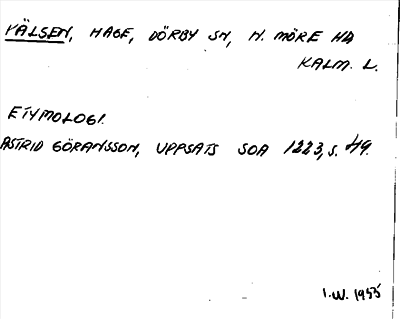 VÄLSEN, HAGE, DÖRBY SN, N. MÖRE HD
KALM. L.
ETYMOLOGI.
ASTRID GÖRANSSON, UPPSATS SOA 1223, S. 49.
I.W. 1955